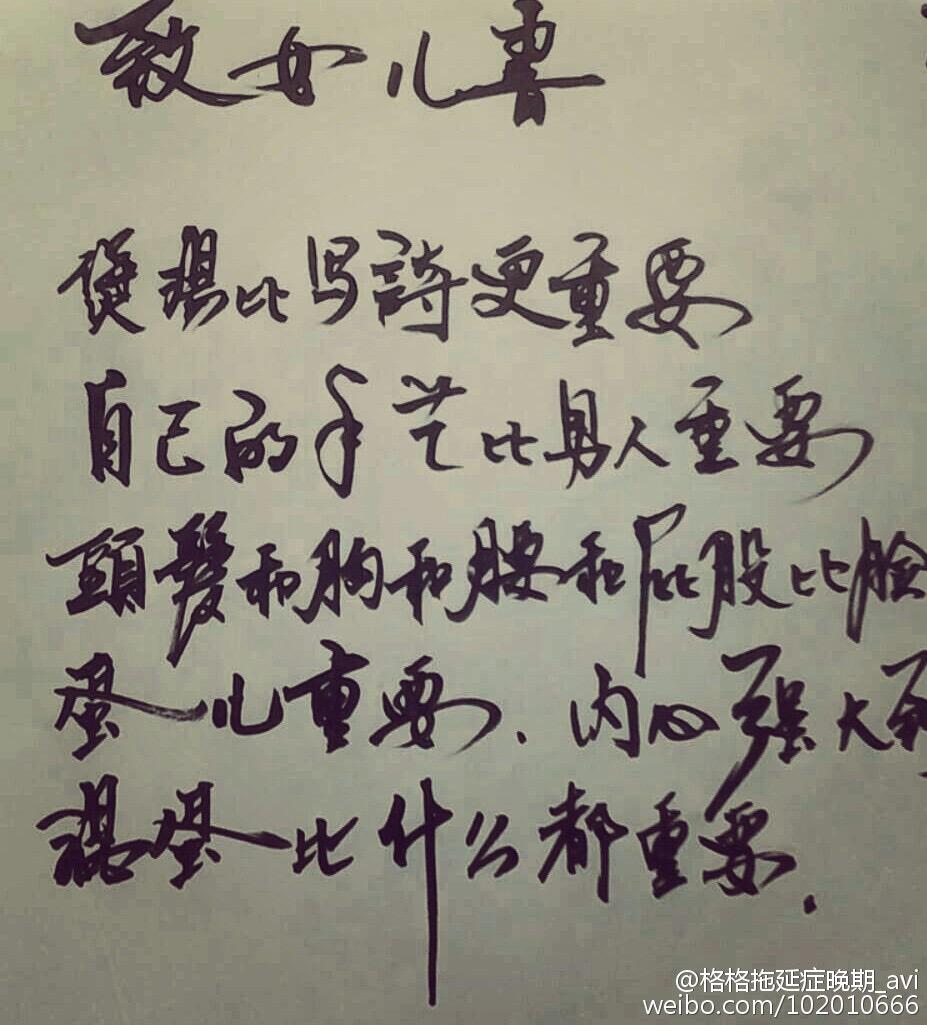 致女儿書
煲湯比写詩更重要
自己的手艺比男人重要
頭髮和胸和腰和屁股比脸
蛋儿重要、内心强大到
混蛋比什么都重要.
@格格拖延症晚期_avi
weibo.com/102010666